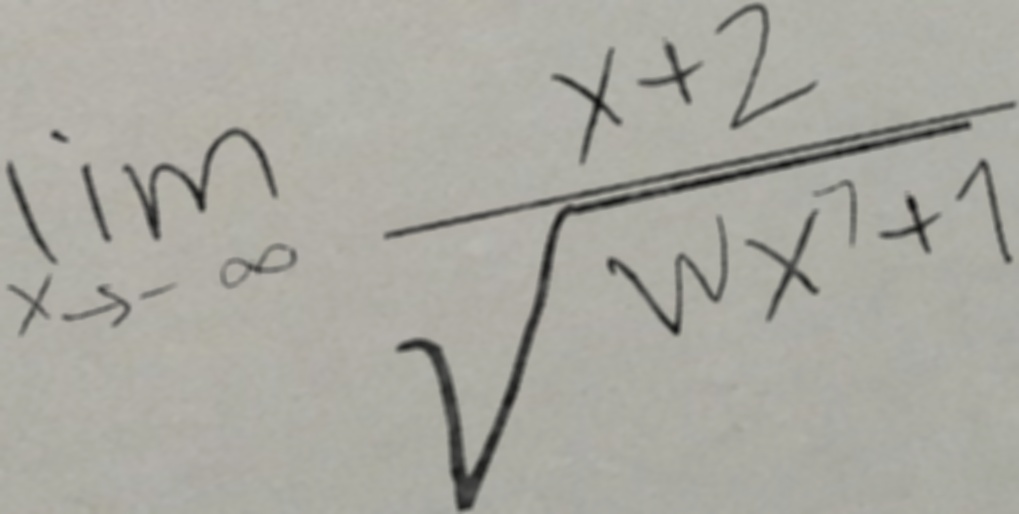 lim x→-∞ x+2 / √(wx^7+1)